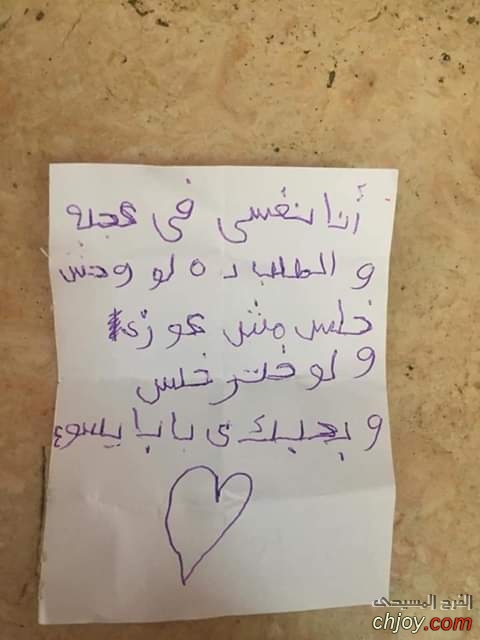 أنا نفسى فى عجله
و الطلب ده لو وحش
خلس مش عوزه
و لو ختر خلس
و بحبك ى بابا يسوع
الفرح المسيحى
chjoy.com